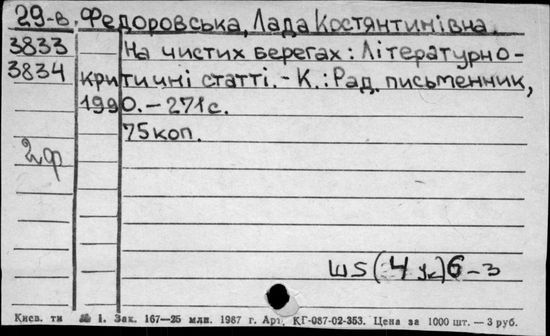 29-в. Федоровська, Лада Костянтинівна.
3833 На чистих берегах: Літературно-
3834 критичні статті. - К.: Рад. письменник,
1990. - 271 с.
75 коп.
2ф
Ш5(4 Ук)6-3
Київ. ти № 1. Зак. 167—25 млн. 1987 г. Арт. КГ-087-02-353. Цена за 1000 шт. — 3 руб.